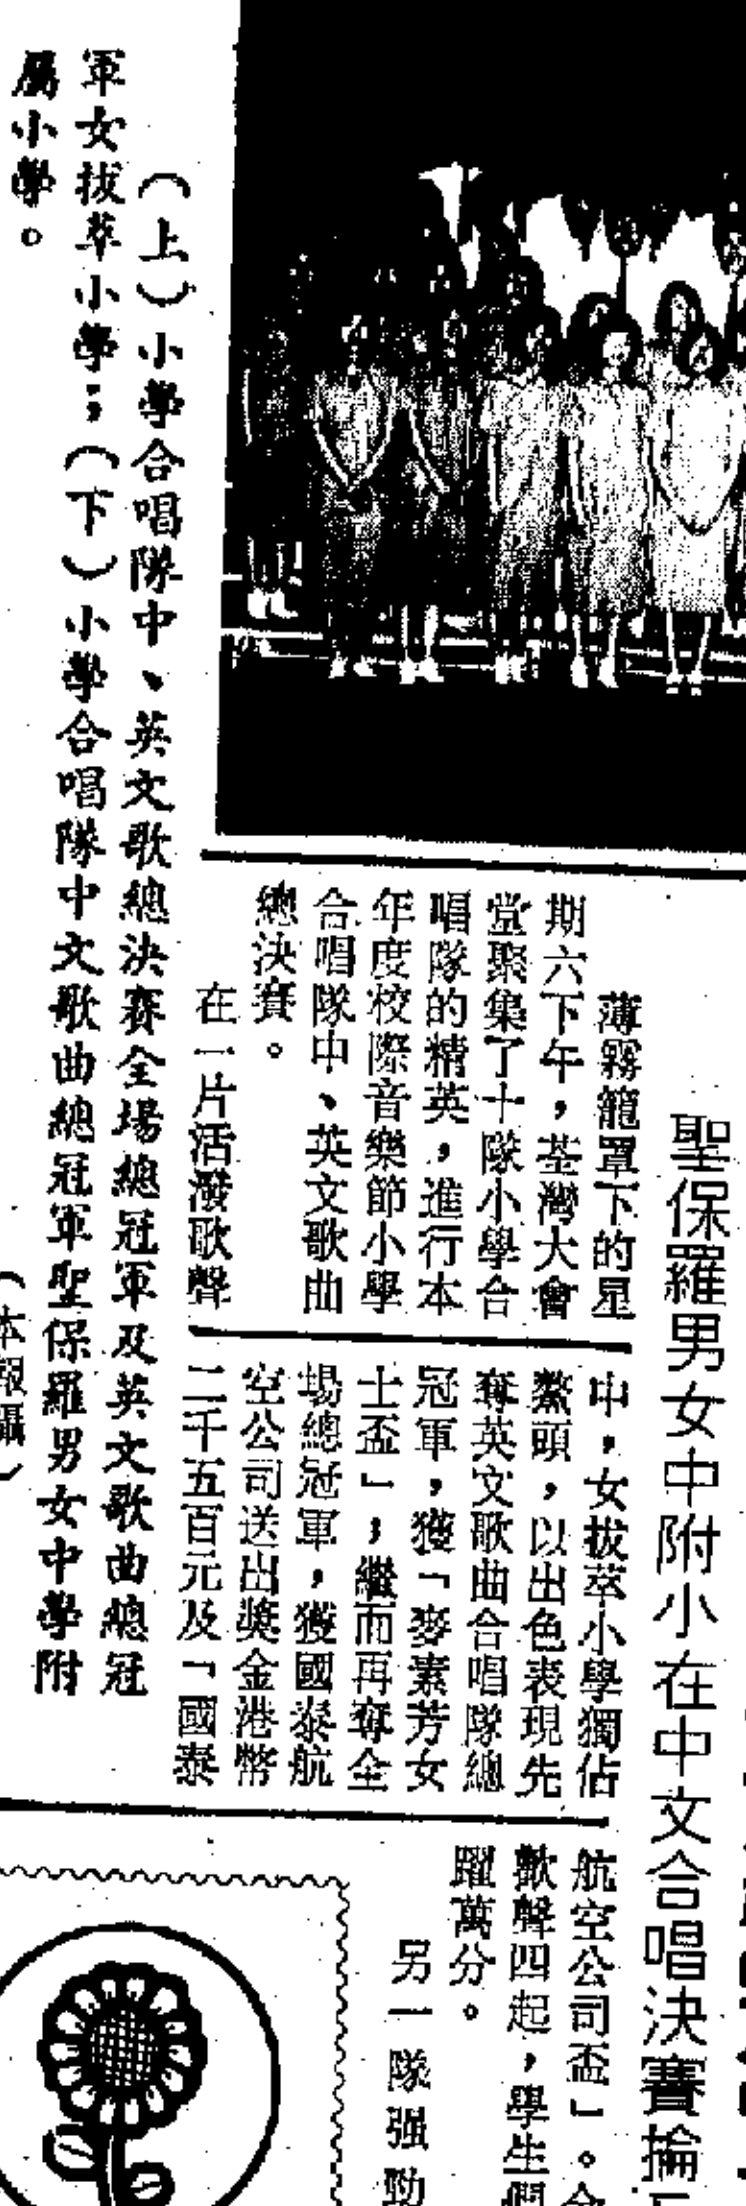 聖保羅男女中附小在中文合唱決賽掄
薄霧籠罩下的星
期六下午，荃灣大會
堂聚集了十隊小學合
唱隊的精英，進行本
年度校際音樂節小學
合唱隊中、英文歌曲
總決賽。
在一片活潑歌聲
中，女拔萃小學獨佔
鰲頭，以出色表現先
奪英文歌曲合唱隊總
冠軍，獲「麥素芳女
士盃」，繼而再奪全
場總冠軍，獲國泰航
空公司送出獎金港幣
二千五百元及「國泰
航空公司盃」。
歡聲四起，學生們
躍萬分。
另一隊強勁
（上）小學合唱隊中、英文歌總決賽全場總冠軍及英文歌曲總冠
軍女拔萃小學；（下）小學合唱隊中文歌曲總冠軍聖保羅男女中學附
屬小學。
（本報攝）